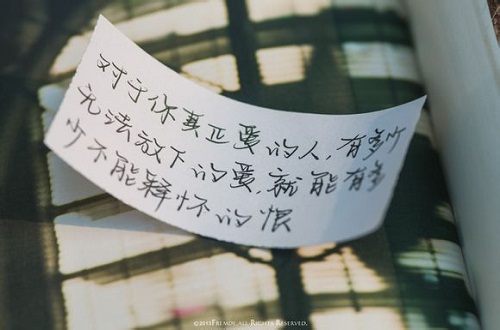 对于你真正爱的人,有多少
无法放下的爱,就能有多
少不能释怀的恨
©2012Fremoy.all Rights Reserved.